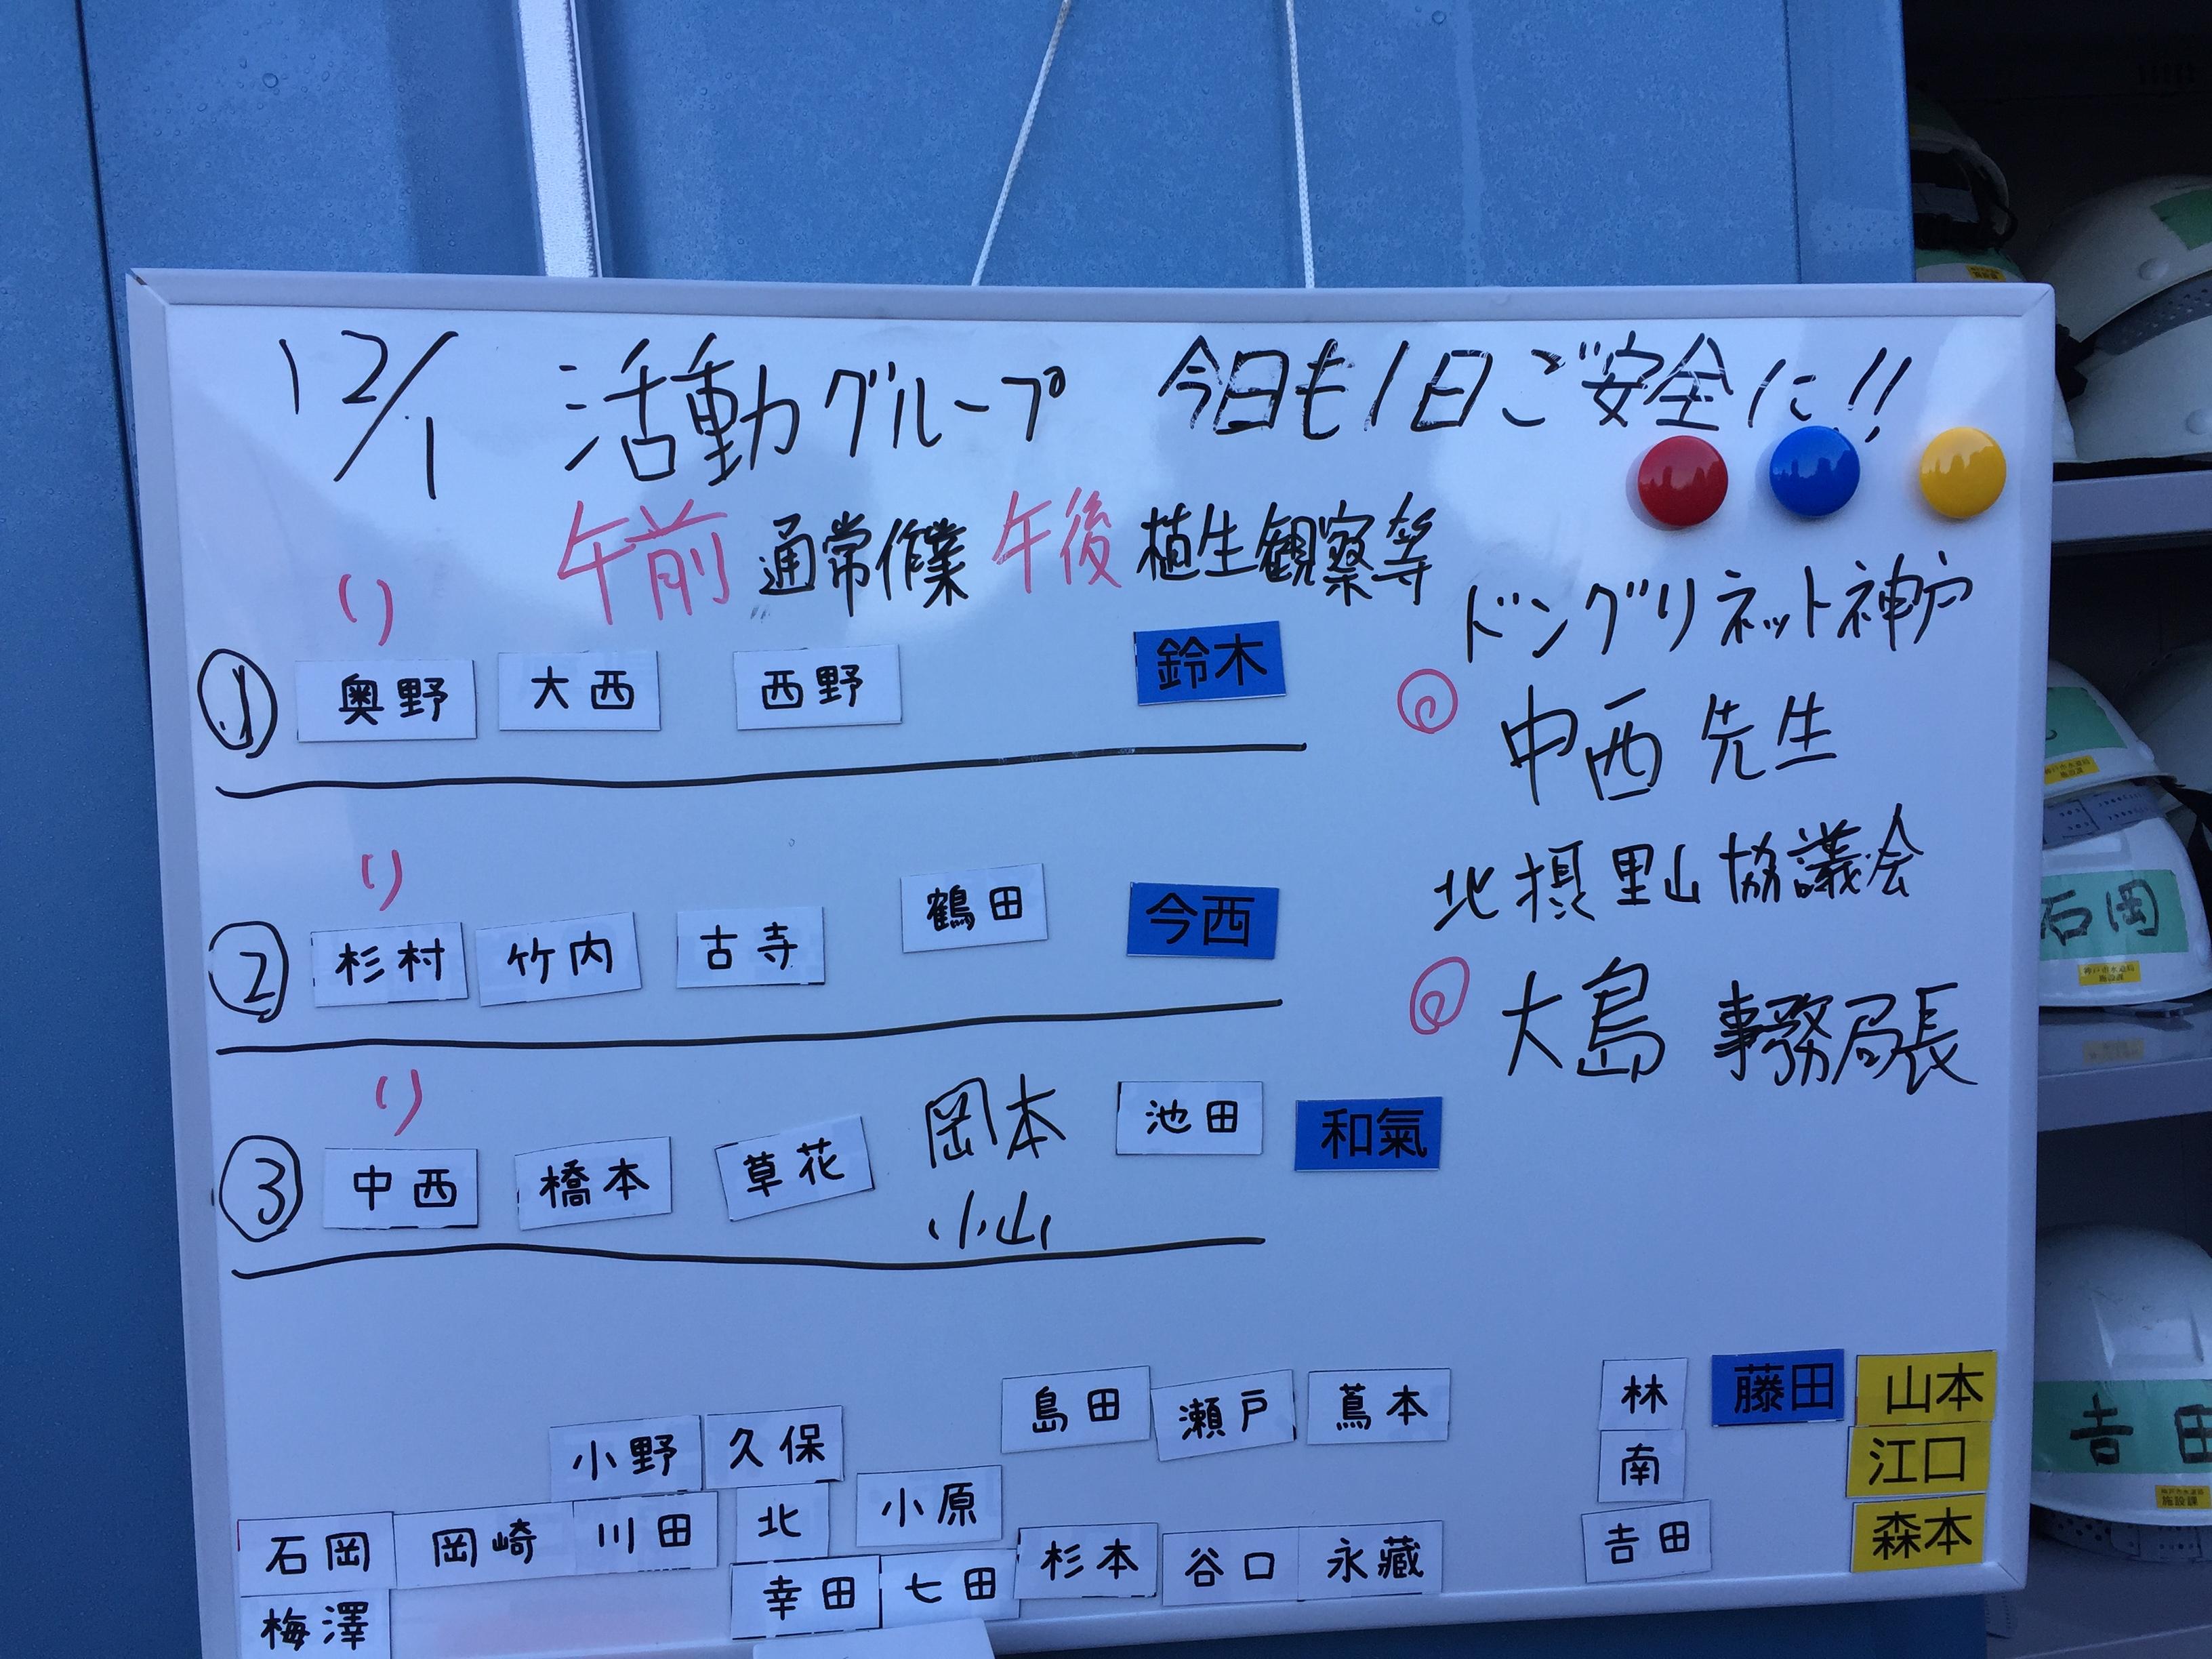 12/1 活動グループ 今日も1日ご安全に!!
午前 通常作業 午後 植生観察等
ドングリネット神戸
中西先生
北摂里山協議会
大島 事務局長
リ
① 奥野 大西 西野 鈴木
リ
② 杉村 竹内 古寺 鶴田 今西
リ
③ 中西 橋本 草花 岡本 池田 和氣
小山
島田 瀬戸 蔦本 林 藤田 山本
小野 久保 南 江口
石岡 岡崎 川田 北 小原 杉本 谷口 永藏 吉田 森本
梅澤 幸田 七田
石岡
吉田